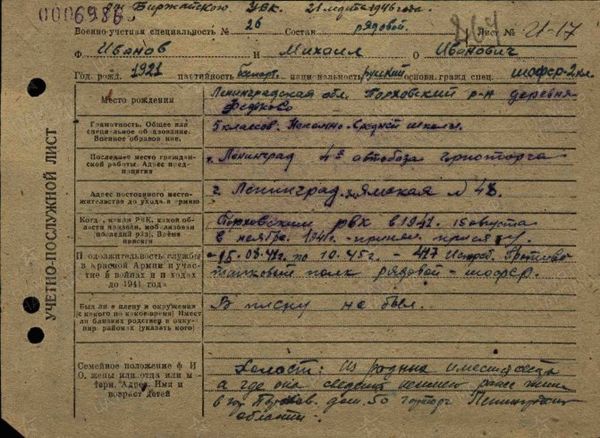 0006986
Биржайскою РВК. 21 марта 1946 года.
Военно-учетная специальность № 26 Состав рядовой. Лист № И-17
Ф Иванов И Михаил О Иванович
Год. рожд. 1921 партийность беспарт. национальность русский основн. гражд. спец. шофер-2 кл.
УЧЕТНО-ПОСЛУЖНОЙ ЛИСТ
Место рождения
Ленинградская обл. Порховский р-н деревня
Федково
Грамотность. Общее или
специальное образование.
Военное образование.
5 классов. Неполно-средней школы.
Последнее место граждан-
ской работы. Адрес пред-
приятия
г. Ленинград 4я автобаза горпоторга
Адрес постоянного место-
жительства до ухода в армию
г. Ленинград. Ямская № 48
Когда, каким РВК, какой об-
ласти призван, мобилизован
последний раз. Время
присяги
Порховским РВК в 1941. 15 августа
в ноябре 1941г. - принял присягу
Продолжительность службы
в Красной Армии и участ-
ие в войнах и походах
до 1941 года
15.08.41г. по 10.45г. - 417 Противо
танковый полк рядовой - шофер.
Был ли в плену и окружении
(с какого по какое время) Имеет
ли близких родствен в оккупир.
районах (указать кого)
В плену не был.
Семейное положение ф И
О, жены или отца или ма-
тери. Адрес. Имя и
возраст детей
Холост: Из родных имеет
а где она ранее жила
в гор дом. 50 Ленинградской
области.